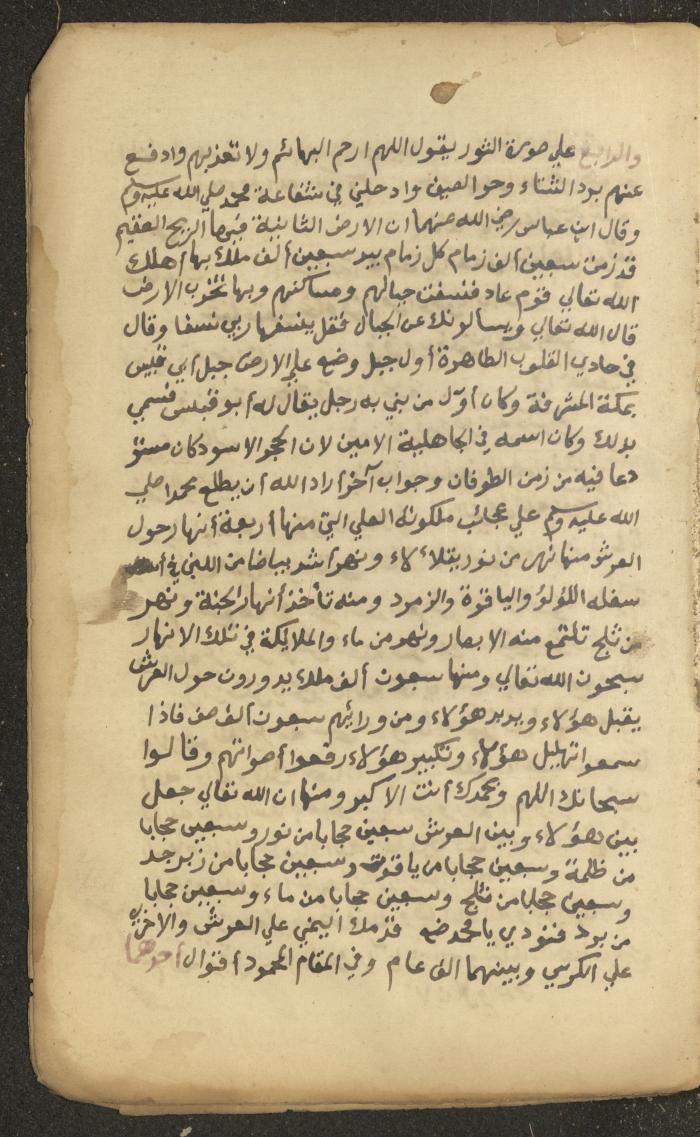 والرابع علي صورة الثور يقول اللهم ارحم البهائم ولا تعذبهم وادفع
عنهم برد الشتاء وحر الصيف وادخلني في شفاعة محمد صلي الله عليه وسلم
وقال ابن عباس رضي الله عنهما ان الارض الثانية فيها الريح العقيم
قد زمت سبعين ألف زمام كل زمام بيد سبعين ألف ملك بها أهلك
الله تعالي قوم عاد فنسفت جبالهم ومساكنهم وبها تخرب الارض
قال الله تعالي ويسألونك عن الجبال فقل ينسفها ربي نسفا وقال
في حادي القلوب الطاهرة أول جبل وضع علي الارض جبل أبي قبيس
بمكة المشرفة وكان أول من بني به رجل يقال له أبو قبيس فسمي
بذلك وكان اسمه في الجاهلية الامين لان الحجر الاسود كان مستو
دعا فيه من زمن الطوفان وجواب آخر أراد الله أن يطلع محمدا صلي
الله عليه وسلم علي عجائب ملكوته العلي التي منها أربعة أنهار حول
العرش منها نهر من نور يتلألاء ونهر أشد بياضا من اللبن في أ
سفله اللؤلؤ والياقوة والزمرد ومنه تأخذ أنهار الجنة ونهر
من ثلج تلتمع منه الابصار ونهر من ماء والملايكة في تلك الانهار
سبحون الله تعالي ومنها سبعون ألف ملك يدورون حول العرش
يقبل هؤلاء ويدبر هؤلاء ومن ورائهم سبعون ألف صف فاذا
سمعوا تهليل هؤلاء وتكبير هؤلاء رفعوا أصواتهم وقالوا
سبحانك اللهم وبحمدك أنت الاكبر ومنها ان الله تعالي جعل
بين هؤلاء وبين العرش سبعين حجابا من نور وسبعين حجابا
من ظلمة وسبعين حجابا من ياقوت وسبعين حجابا من زبرجد
وسبعين حجابا من ثلج وسبعين حجابا من ماء وسبعين حجابا
من برد فنودي يا محمد ضع قدمك اليمني علي العرش والاخري
علي الكرسي وبينهما الف عام وفي المقام المحمود أقوال أحدها